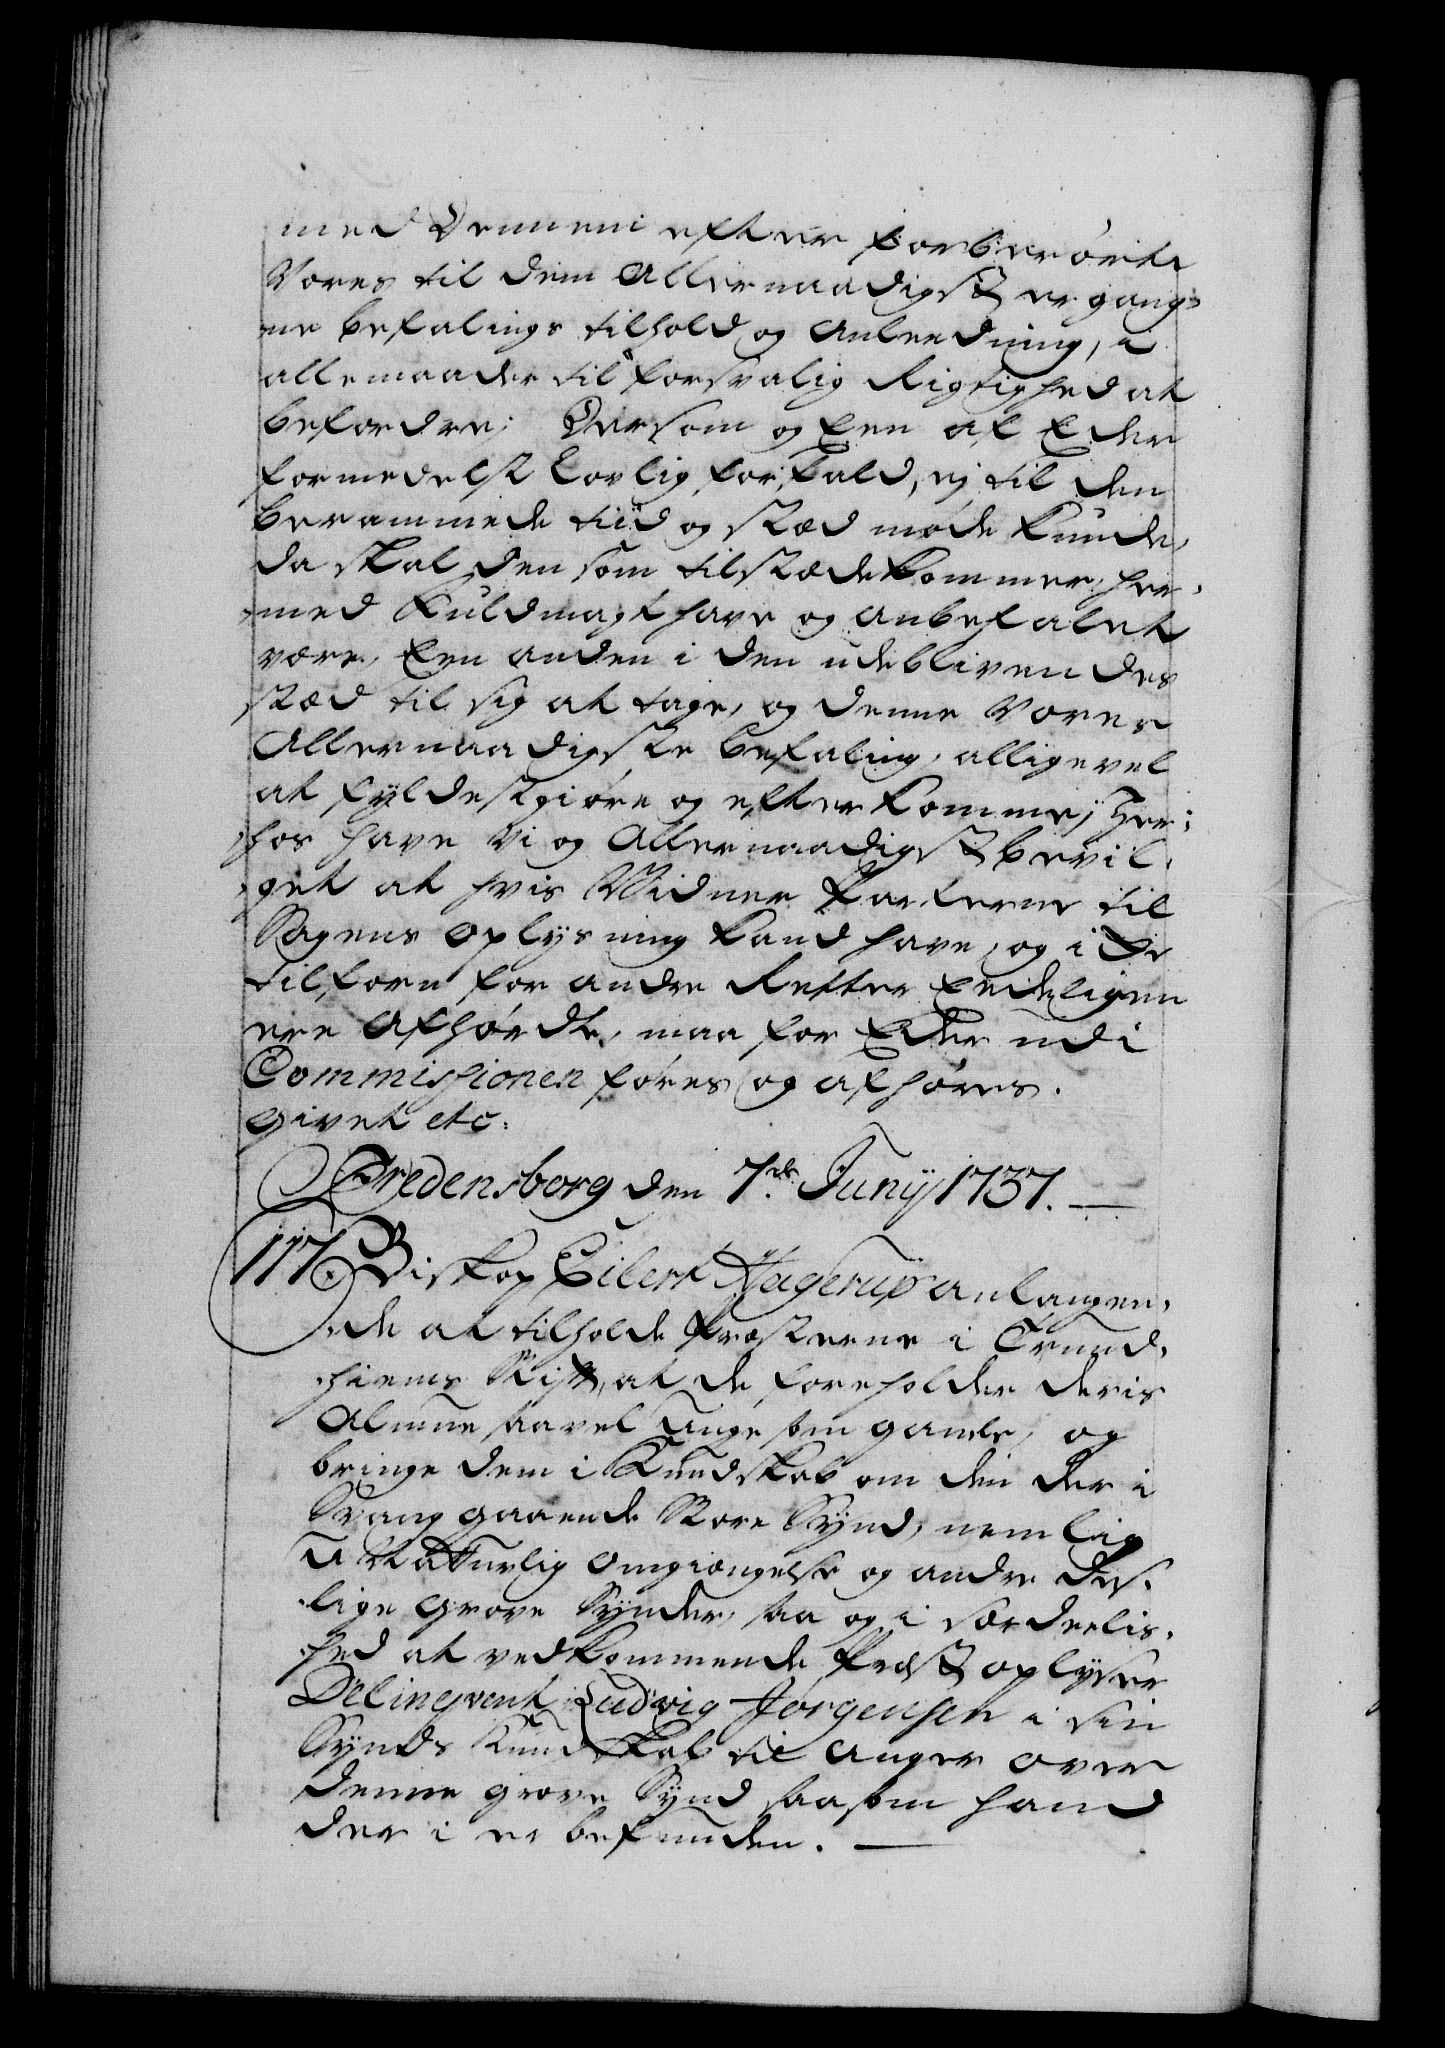 med Dennem efter forberørte
Vores til dem Allernaadigst ergang-
ne befalings tilhold og Anleedning, i
allemaader til forsvarlig Rigtighed at
befordre; Dersom og Een af Eder
formedelst Lovlig forfald, ej til den
berammede tiid og stæd møde kunde,
da skal den som tilstæde kommer, her-
med Fuldmagt have og anbefalet
være, Een anden i den udeblivendes
stæd til sig at tage, og denne Vores
Allernaadigste befaling, alligevel
at fyldestgiøre og efterkomme; Her-
hos have Vi og Allernaadigst bevil-
get at hvis Widner Parterne til
Sagens oplysning kand have, og i Ey
tilforn for andre Retter Eedeligen
ere Afhørdte, maa for Eder udi
Commissionen føres og afhøres.
Givet etc:
Fredensborg den 7de Junij 1737.
117. Biskop Eilert Hagerup anlangen-
de at tilholde Præsterne i Trund-
hiems Stift, at de foreholder deris
Almue saavel Unge som Gamle, og
bringe dem i Kundskab om den der i
Svang gaaende Store Synd, nemlig
U-Naturlig omgiængelse og andre des-
lige grove Synder, saa og i særdeelis-
hed at vedkommende Præst oplyser
Delinqvent Ludvig Jørgensen i sin
Synds Kundskab til Anger over
denne grove Synd saasom hand
der i er befunden.